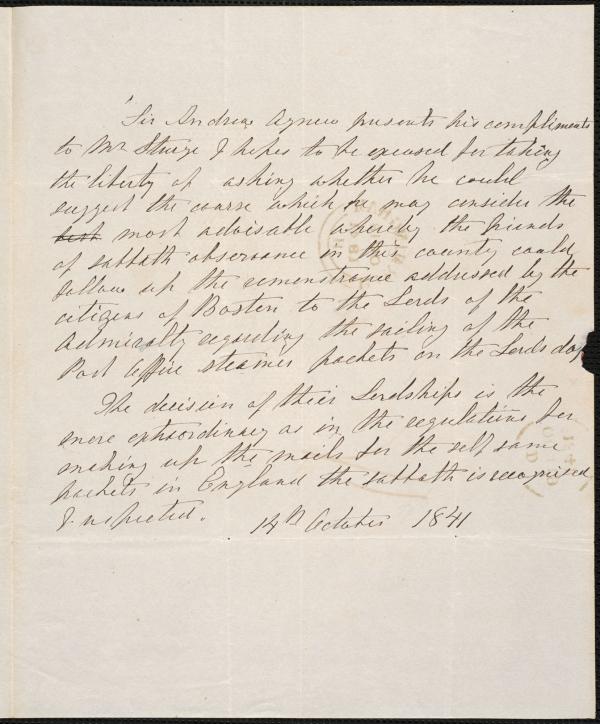 Sir Andrew Agnew presents his compliments
to Mr Sturge & hopes to be excused for taking
the liberty of asking whether he could
suggest the course which he may consider the
best most advisable whereby the friends
of sabbath observance in this county could
follow up the remonstrance addressed by the
citizens of Boston to the Lords of the
Admiralty regarding the sailing of the
Post Office steamer packets on the Lords day
The decision of their Lordships is the
more extraordinary as in the regulations for
making up the mails for the self same
packets in England the sabbath is recognised
& respected.
14th October 1841